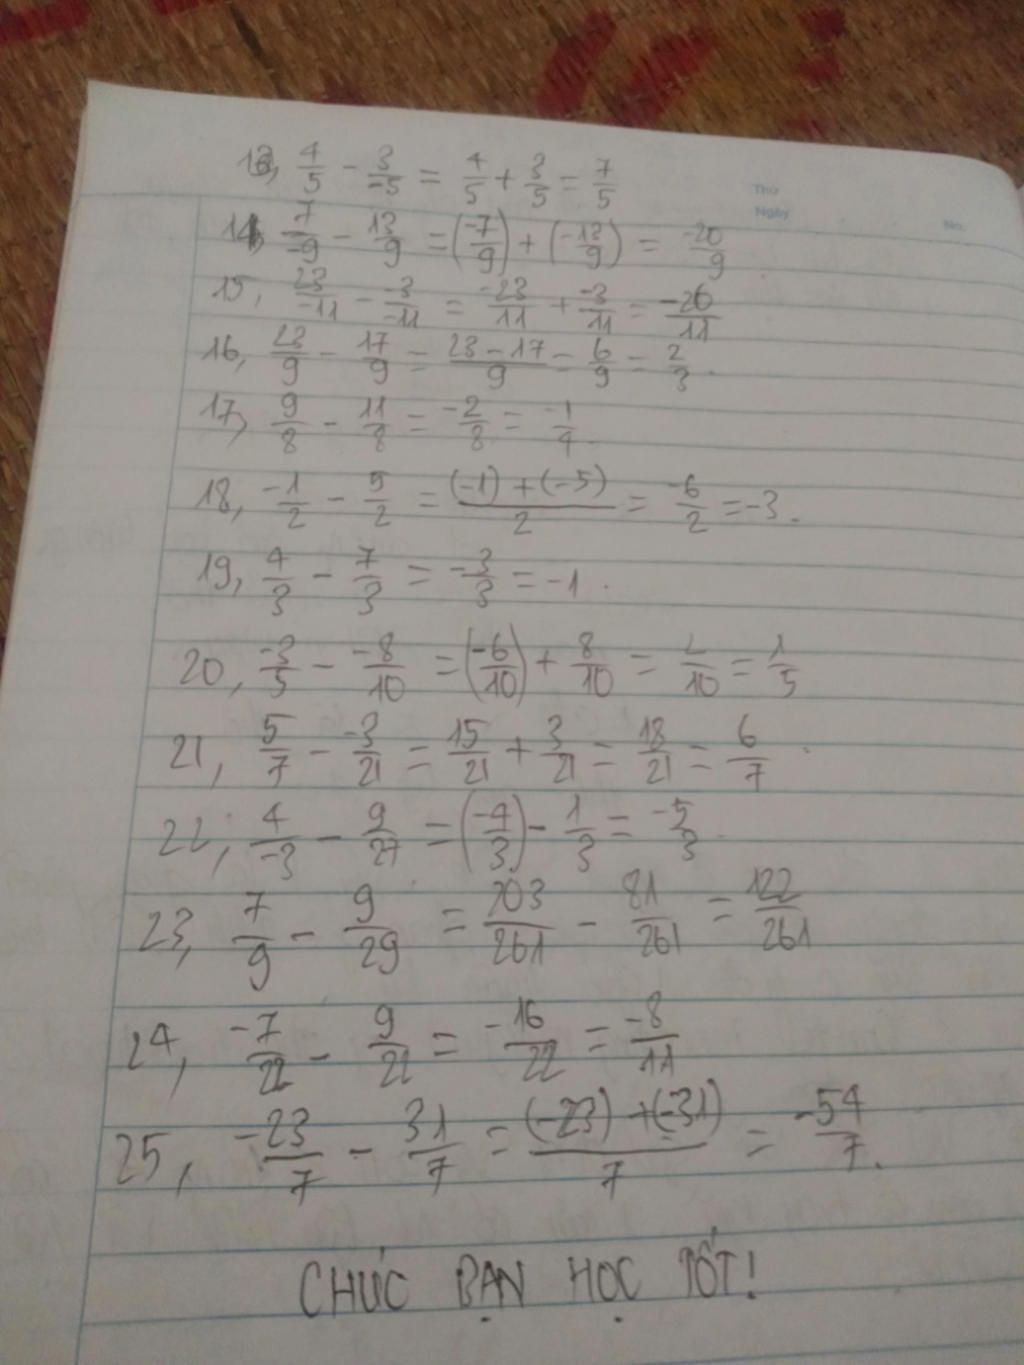 13, 4/5 - 3/-5 = 4/5 + 3/5 = 7/5
Thứ
Ngày
No.
14, 7/-9 - 13/9 = (-7/9) + (-13/9) = -20/9
15, 23/-11 - -3/-11 = -23/11 + -3/11 = -26/11
16, 23/9 - 17/9 = 23-17/9 = 6/9 = 2/3.
17, 9/8 - 11/8 = -2/8 = -1/4.
18, -1/2 - 5/2 = (-1)+(-5)/2 = -6/2 = -3.
19, 4/3 - 7/3 = -3/3 = -1.
20, -3/5 - -8/10 = (-6/10) + 8/10 = 2/10 = 1/5
21, 5/7 - -3/21 = 15/21 + 3/21 = 18/21 = 6/7.
22, 4/-3 - 9/27 = (-4/3) - 1/3 = -5/3.
23, 7/9 - 9/29 = 203/261 - 81/261 = 122/261
24, -7/22 - 9/22 = -16/22 = -8/11
25, -23/7 - 31/7 = (-23)+(-31)/7 = -54/7.
CHÚC BẠN HỌC TỐT!